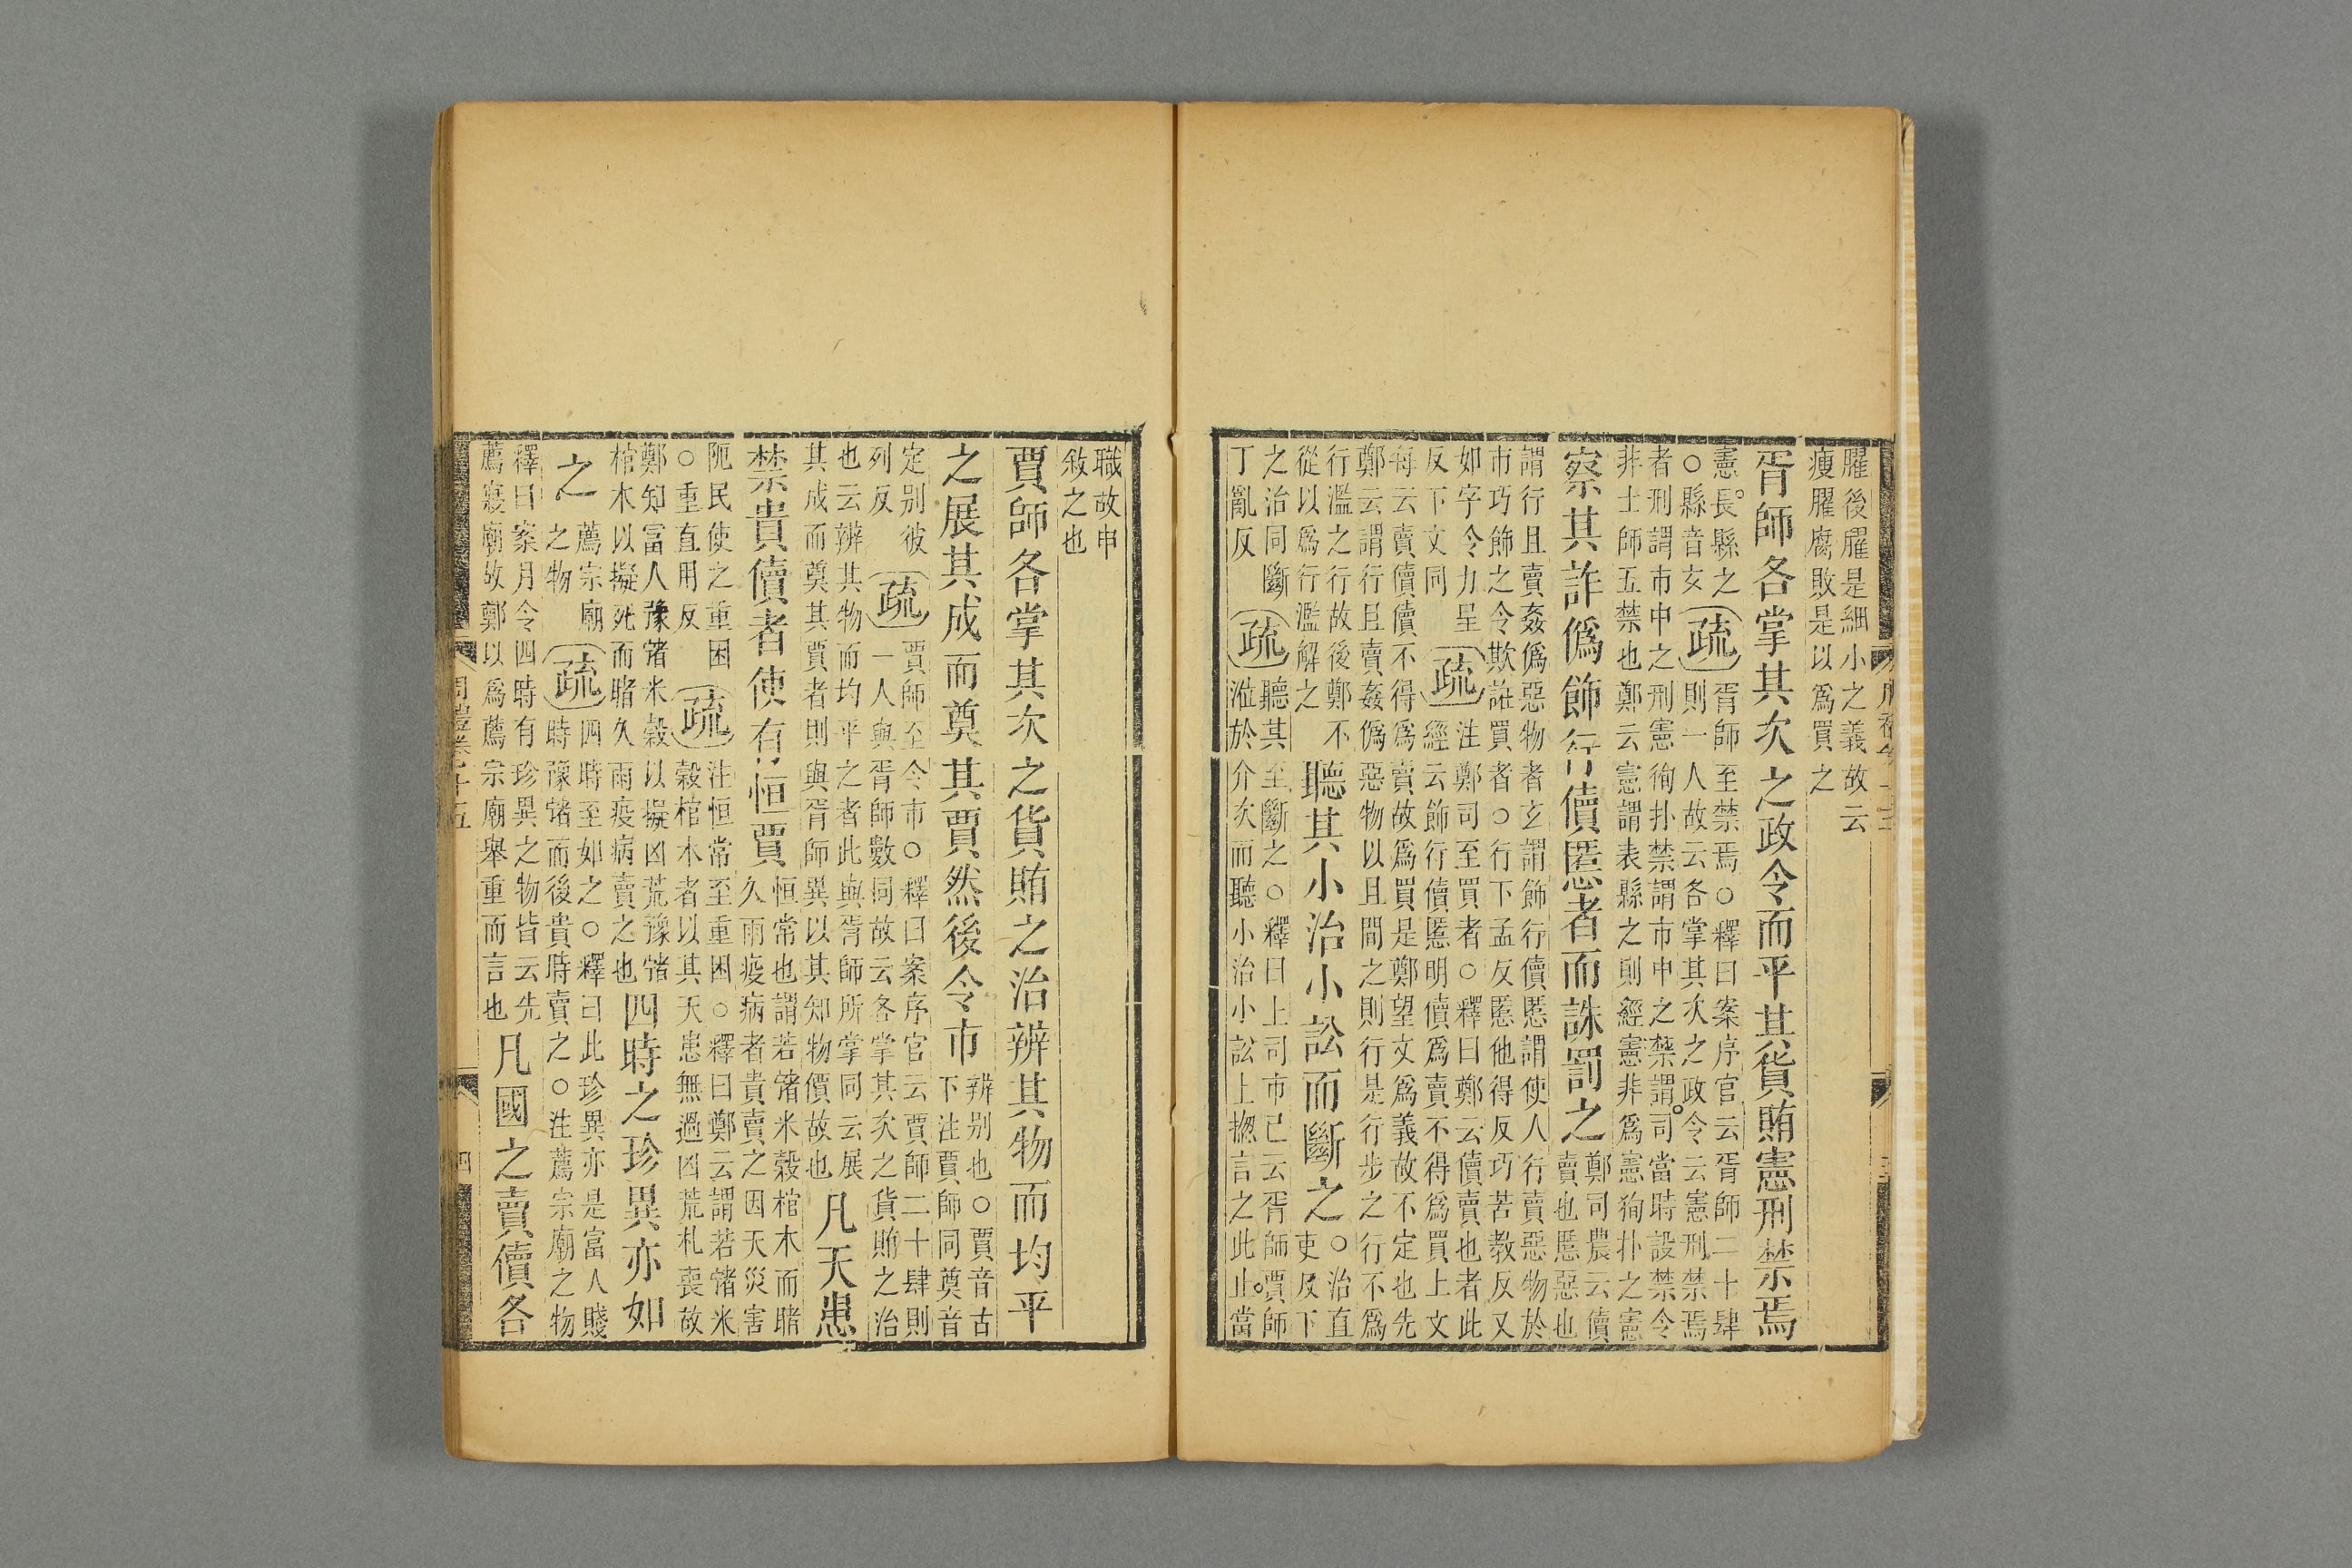 臞後臞是細小之義故云
瘦臞腐敗是以為買之
胥師各掌其次之政令而平其貨賄憲刑禁焉
憲長縣之
○縣音玄
疏
胥師至禁焉○釋曰案序官云胥師二十肆
則一人故云各掌其次之政令云憲刑禁焉
者刑謂市中之刑憲徇扑禁謂市中之禁謂司當時設禁令
非士師五禁也鄭云憲謂表縣之則經憲非為憲徇扑之憲
察其詐偽飾行儥慝者而誅罰之
鄭司農云儥
賣也慝惡也
謂行且賣姦偽惡物者玄謂飾行儥慝謂使人行賣惡物於
市巧飾之令欺誑買者○行下孟反慝他得反巧苦教反又
如字令力呈
反下文同
疏
注鄭司至買者○釋曰鄭云儥賣也者此
經云飾行儥慝明儥為賣不得為買上文
每云賣儥儥不得為賣故為買是鄭望文為義故不定也先
鄭云謂行且賣姦偽惡物以且間之則行是行步之行不為
行濫之行故後鄭不
從以為行濫解之
聽其小治小訟而斷之
○治直
吏反下
之治同斷
丁亂反
疏
聽其至斷之○釋曰上司市已云胥師賈師
涖於介次而聽小治小訟上揔言之此止當
職故申
敘之也
賈師各掌其次之貨賄之治辨其物而均平
之展其成而奠其賈然後令市
辨別也○賈音古
下注賈師同奠音
定別彼
列反
疏
賈師至令市○釋曰案序官云賈師二十肆則
一人與胥師數同故云各掌其次之貨賄之治
也云辨其物而均平之者此與胥師所掌同云展
其成而奠其賈者則與胥師異以其知物價故也
凡天患
禁貴儥者使有恒賈
恒常也謂若豬米穀棺木而睹
久雨疫病者貴賣之因天災害
阨民使之重困
○重直用反
疏
注恒常至重困○釋曰鄭云謂若豬米
穀棺木者以其天患無過凶荒札喪故
鄭知富人豫豬米穀以擬凶荒豫豬
棺木以擬死而睹久雨疫病賣之也
四時之珍異亦如
之
薦宗廟
之物
疏
四時至如之○釋曰此珍異亦是富人賤
時豫豬而後貴時賣之○注薦宗廟之物
釋曰案月令四時有珍異之物皆云先
薦寢廟故鄭以為薦宗廟舉重而言也
凡國之賣儥各